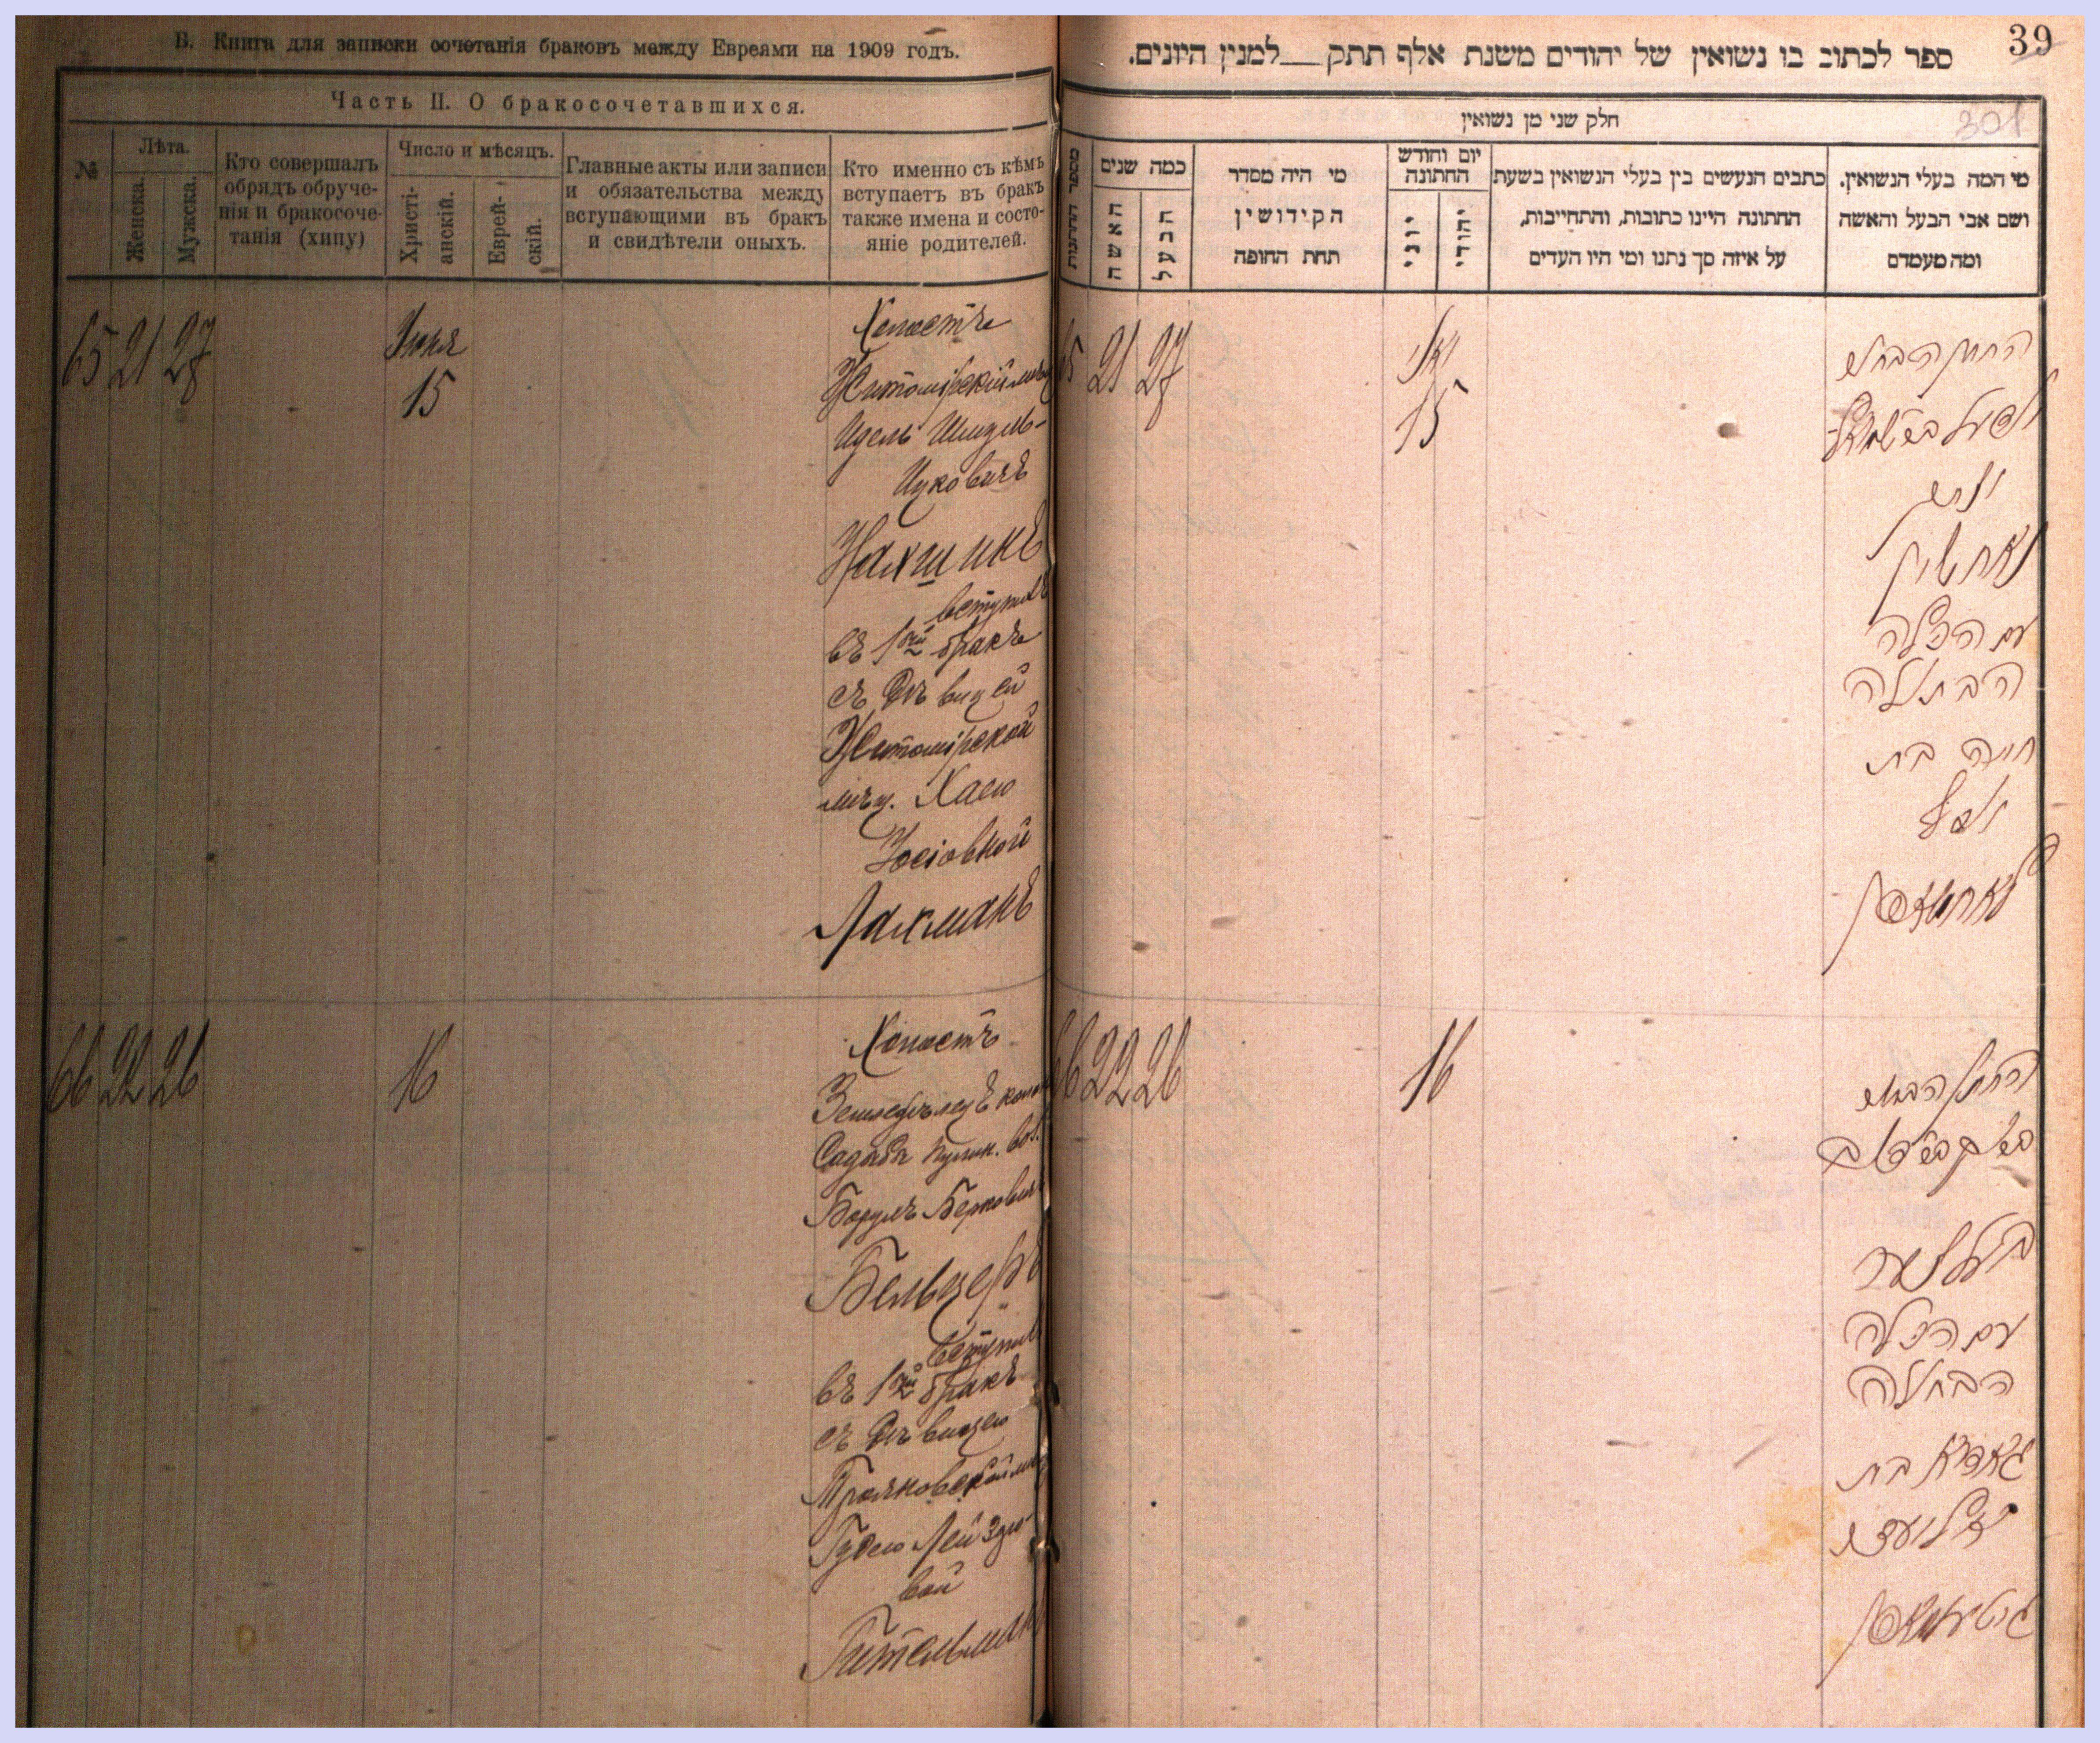 Б. Книга для записки сочетанія браковъ между Евреями на 1909 годъ.
Часть II. О бракосочетавшихся.
№
Лѣта.
Женска.
Мужска.
Кто совершалъ
обрядъ обруче-
нія и бракосоче-
танія (хипу)
Число и мѣсяцъ.
Христі-
анскій.
Еврей-
скій.
Главные акты или записи
и обязательства между
вступающими въ бракъ
и свидѣтели оныхъ.
Кто именно съ кѣмъ
вступаетъ въ бракъ
также имена и состо-
яніе родителей.
65 21 27
Іюня
15
Холостъ
Житомірскій мѣщ
Идель Шмуль-
Ицковичъ
Нахшинъ
вступилъ
въ 1ый бракъ
съ дѣвицей
Житомірской
мѣщ. Хаею
Іосіовной
Лахманъ
66 22 26
16
Холостъ
Земледѣлецъ
Пулин. вол.
Берковичъ
Бельцеръ
вступилъ
въ 1ый бракъ
съ дѣвицею
Трояновской
Гудею Лейзеро-
вой
Гительманъ
39
301
ספר לכתוב בו נשואין של יהודים משנת אלף תתק למנין היונים.
חלק שני מן נשואין
מספר החתונות
כמה שנים
האשה
הבעל
מי היה מסדר
הקידושין
תחת החופה
יום וחודש
החתונה
יוני
יהודי
כתבים הנעשים בין בעלי הנשואין בשעת
החתונה היינו כתובות, והתחייבות,
על איזה סך נתנו ומי היו העדים
מי המה בעלי הנשואין.
ושם אבי הבעל והאשה
ומה מעמדם
65 21 27
יוני
15
החתן הבחור
נאחשין
עם הכלה
הבתולה
חיה בת
יוסף
לאחמאן
66 22 26
16
החתן הבחור
בעלצער
עם הכלה
הבתולה
בת
גיטעלמאן